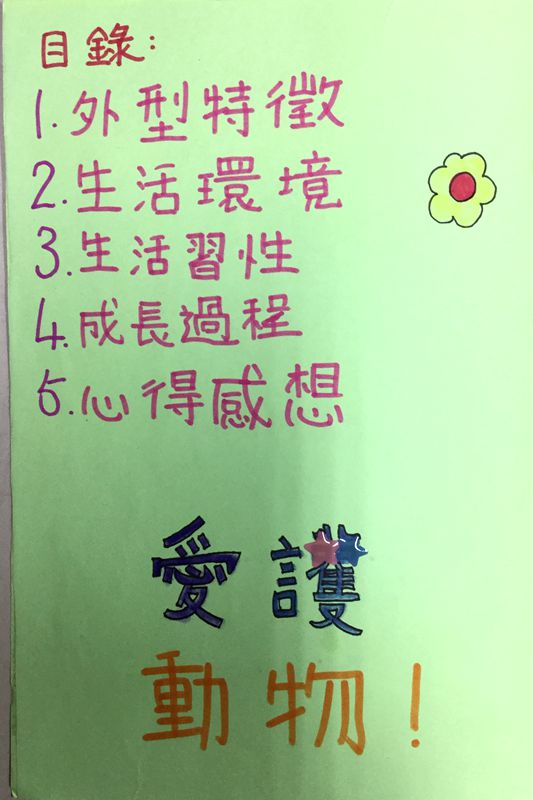 目錄:
1.外型特徵
2.生活環境
3.生活習性
4.成長過程
5.心得感想
愛護
動物!